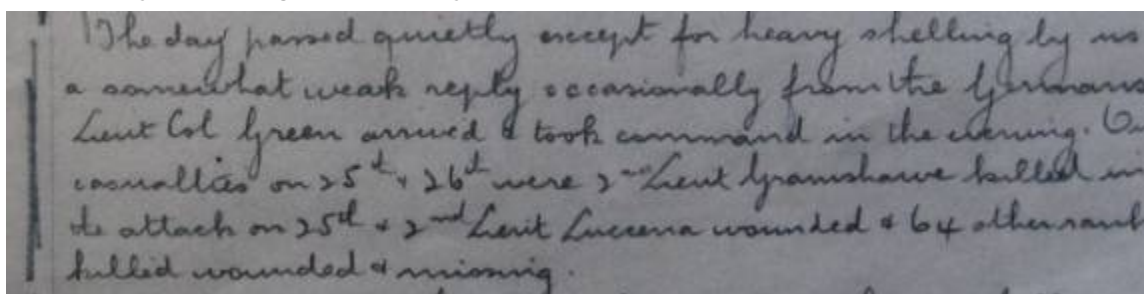 The day passed quietly except for heavy shelling by us
a somewhat weak reply occasionally from the Germans
Lieut Col Green arrived & took command in the evening. O
casualties on 25th & 26th were 2nd Lieut Gramshawe killed in
the attack on 25th & 2nd Lieut Luccena wounded & 64 other rank
killed wounded & missing.